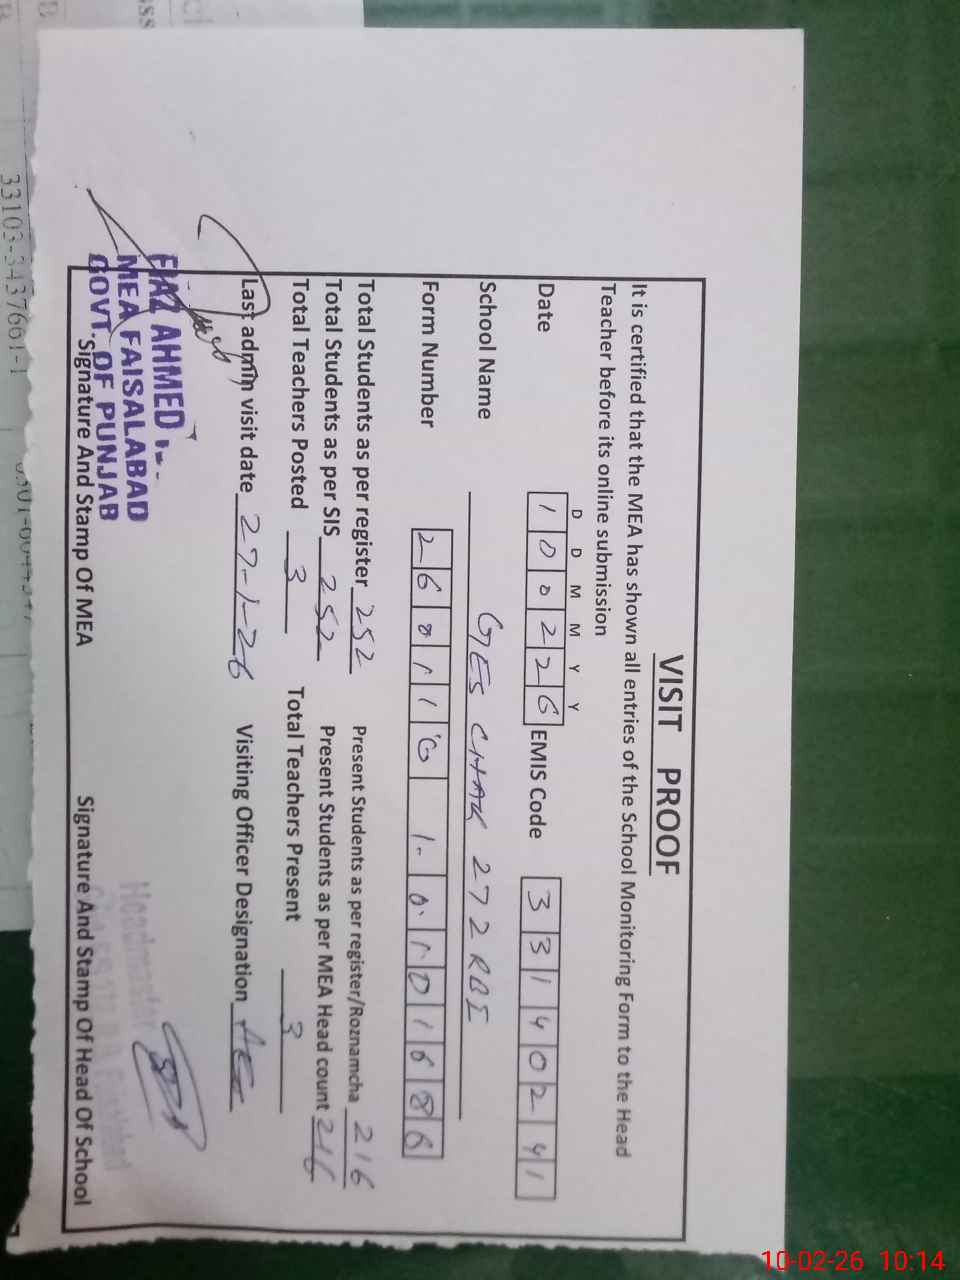 VISIT PROOF
It is certified that the MEA has shown all entries of the School Monitoring Form to the Head
Teacher before its online submission
D D M M Y Y
Date 1 0 0 2 2 6 EMIS Code 3 3 1 4 0 2 4 1
School Name GES CHAK 272 RB I
Form Number 2 6 0 1 1 0 1 0 1 0 1 6 8 6
Total Students as per register 252 Present Students as per register/Roznamcha 216
Total Students as per SIS 252 Present Students as per MEA Head count 216
Total Teachers Posted 3 Total Teachers Present 3
Last admin visit date 27-1-26 Visiting Officer Designation AEO
FIAZ AHMED
MEA FAISALABAD
GOVT. OF PUNJAB
Headmaster
Signature And Stamp Of MEA Signature And Stamp Of Head Of School
33103-3437661-1
10-02-26 10:14